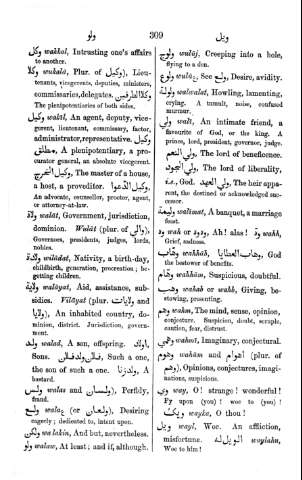 ولو 309 ويل
وكل wakhol, Intrusting one's affairs
to another.
وكلا wukalà, Plur. of (وكيل), Lieu-
tenants, vicegerents, deputies, ministers,
commissaries, delegates. وكلاالطرفين
The plenipotentiaries of both sides.
وكيل wakīl, An agent, deputy, vice-
gerent, lieutenant, commissary, factor,
administrator, representative. وكيل
مطلق, A plenipotentiary, a pro-
curator general, an absolute vicegerent.
وكيل الخرج, The master of a house,
a host, a proveditor. وكيل الدعوا,
An advocate, counsellor, proctor, agent,
or attorney-at-law.
ولاة walāt, Government, jurisdiction,
dominion. Walāt (plur. of والي),
Governors, presidents, judges, lords,
nobles.
ولادة wilādat, Nativity, a birth-day,
childbirth, generation, procreation; be-
getting children.
ولاية walāyat, Aid, assistance, sub-
sidies. Vilāyat (plur. ولايات and
), An inhabited country, do-
minion, district. Jurisdiction, govern-
ment.
ولد walad, A son, offspring. اولاد,
Sons. فلان ولد فلان, Such a one,
the son of such a one. ولد زنا, A
bastard.
ولس walas and (ولسان), Perfidy,
fraud.
ولع walaع (or ولعان), Desiring
eagerly; dedicated to, intent upon.
ولكن wa lakin, And but, nevertheless.
ولو walaw, At least; and if, although.
ولوج wulūj, Creeping into a hole,
flying to a den.
ولوع wulūع. See ولع, Desire, avidity.
ولوله walwalat, Howling, lamenting,
crying. A tumult, noise, confused
murmur.
ولي walī, An intimate friend, a
favourite of God, or the king. A
prince, lord, president, governor, judge.
ولي النعم, The lord of beneficence.
ولي الجود, The lord of liberality,
i.e., God. ولي العهد, The heir appa-
rent, the destined or acknowledged suc-
cessor.
وليمة walīmat, A banquet, a marriage
feast.
وه wah or وه wuh, Ah! alas! وه wahh,
Grief, sadness.
وهاب wahhāb, وهاب العطايا, God
the bestower of benefits.
وهام wahhām, Suspicious, doubtful.
وهب wahab or wahb, Giving, be-
stowing, presenting.
وهم wahm, The mind, sense, opinion,
conjecture. Suspicion, doubt, scruple,
caution, fear, distrust.
وهمي wahmī, Imaginary, conjectural.
وهوم wahūm and اوهام (plur. of
وهم), Opinions, conjectures, imagi-
nations, suspicions.
وي way, O! strange! wonderful!
Fy upon (you)! woe to (you)!
ويك wayka, O thou!
ويل wayl, Woe. An affliction,
misfortune. الويل له waylahu,
Woe to him!